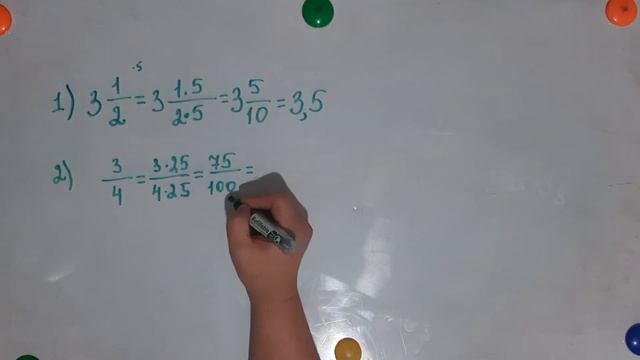 ·5
1) 3 1/2 = 3 1·5/2·5 = 3 5/10 = 3,5
2) 3/4 = 3·25/4·25 = 75/100 =